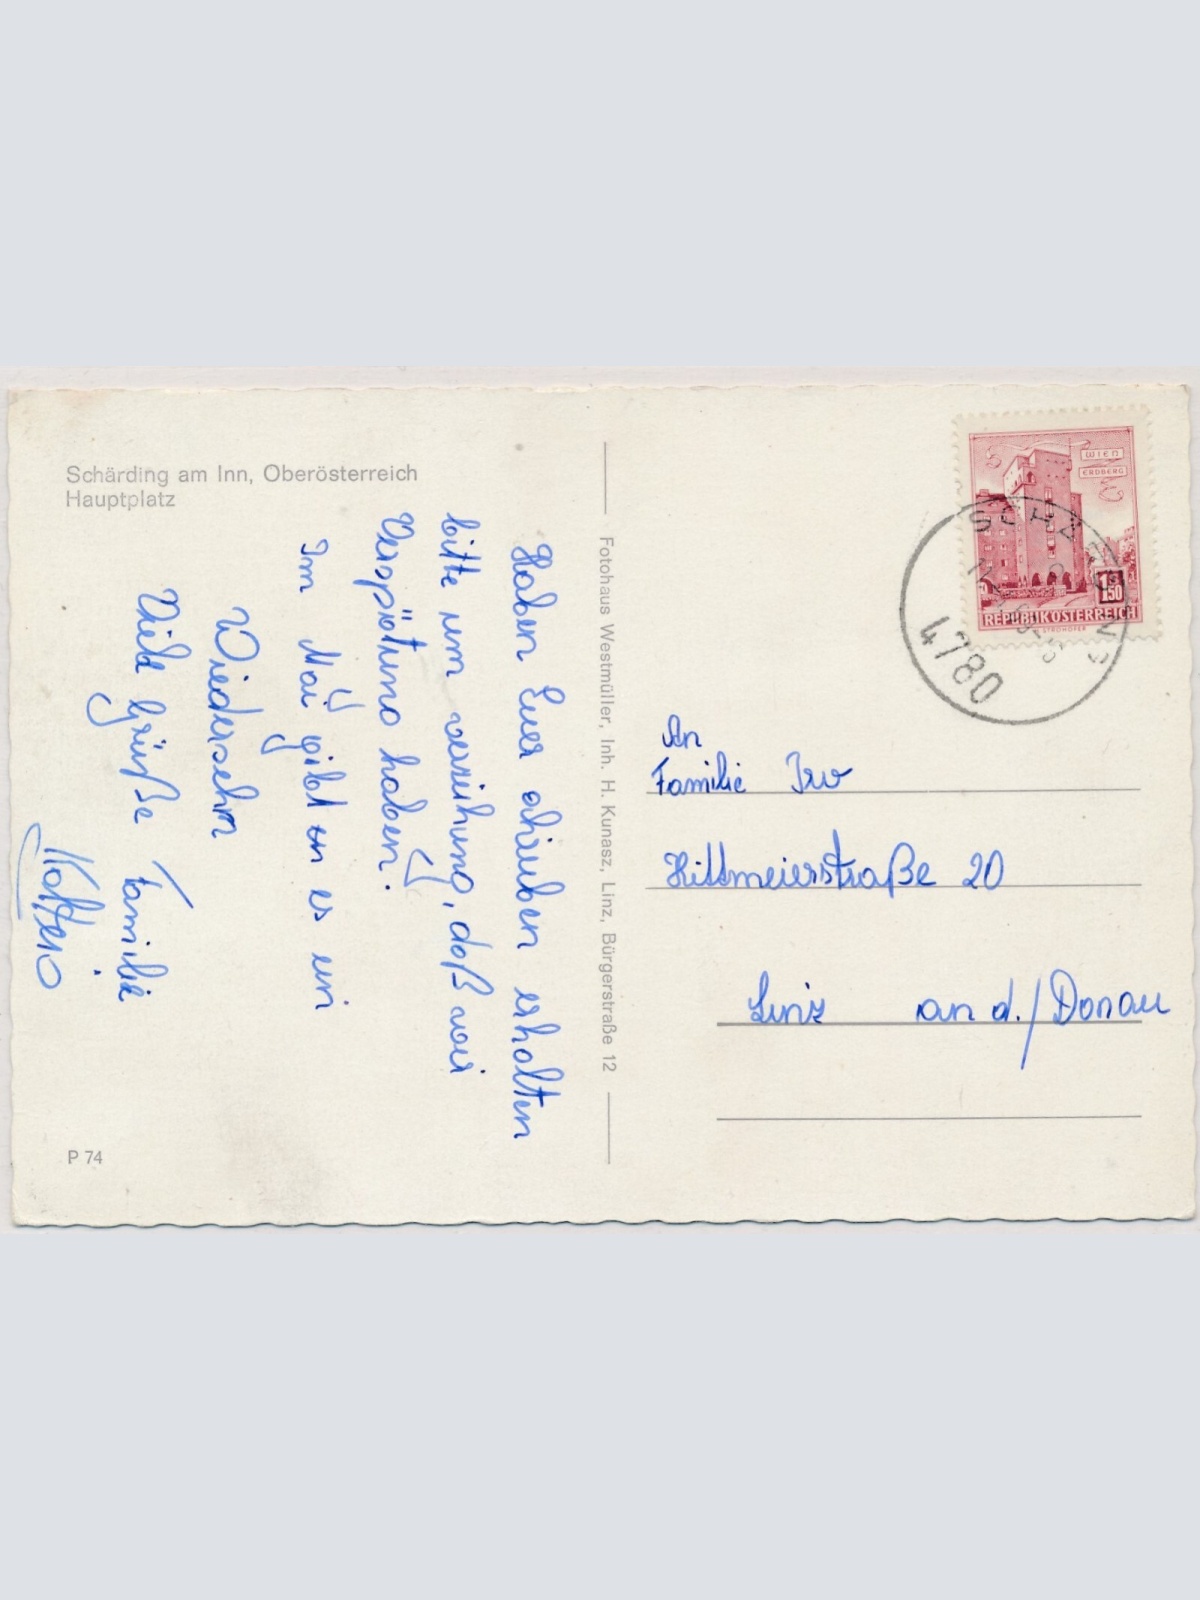 Schärding am Inn, Oberösterreich
Hauptplatz
Haben Euer schreiben erhalten
bitte um verzeihung, daß wir
Verspätung haben.
Im Mai gibt es ein
Wiedersehn
Viele Grüße Familie
P 74
Fotohaus Westmüller, Inh. H. Kunasz, Linz, Bürgerstraße 12
WIEN
ERDBERG
1.50
REPUBLIK ÖSTERREICH
STROHOFER
SCHÄRDING
4780
An
Familie
Hittmeierstraße 20
Linz an d./Donau